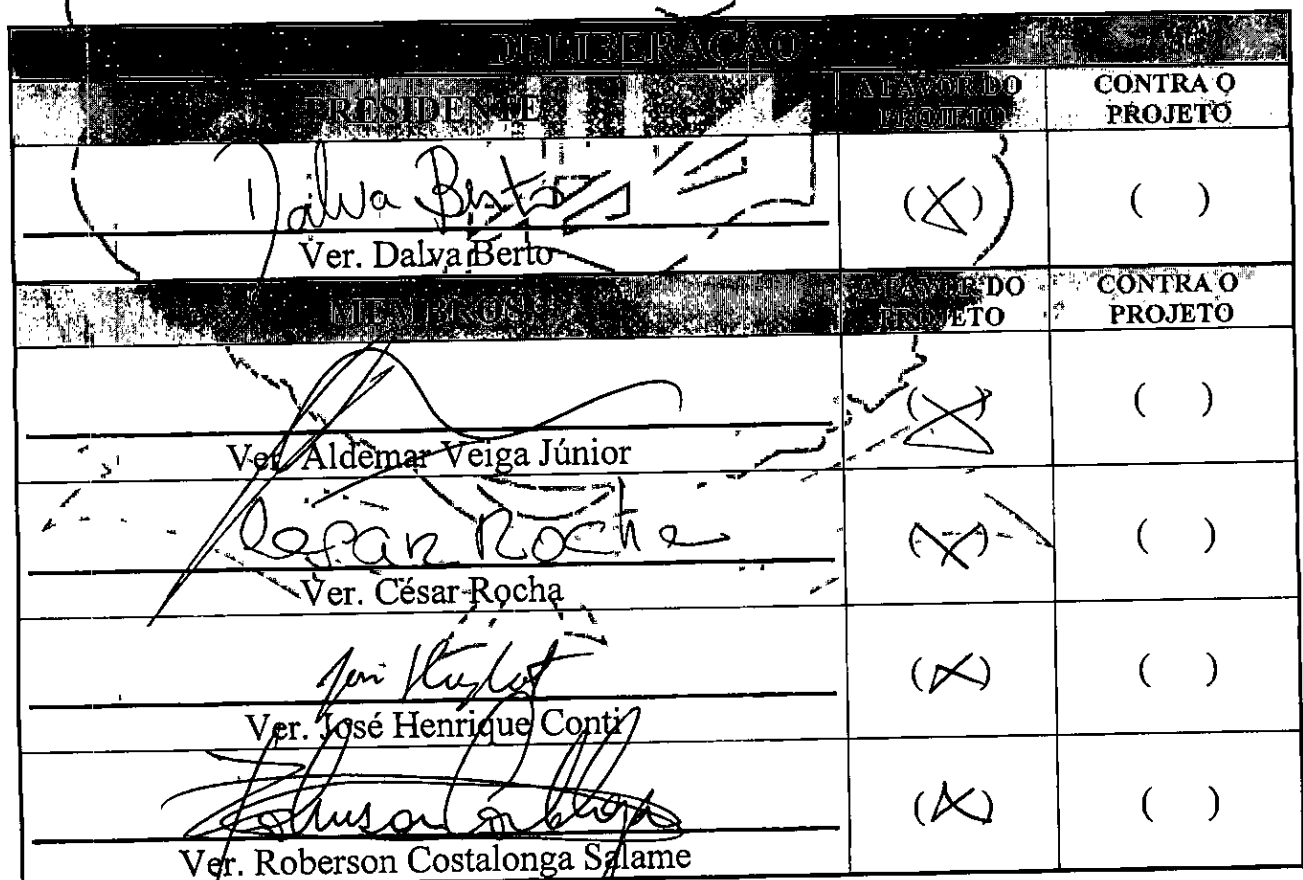 DELIBERAÇÃO
PRESIDENTE
A FAVOR DO
PROJETO
CONTRA O
PROJETO
Dalva Berto
(X)
( )
Ver. Dalva Berto
MEMBROS
A FAVOR DO
PROJETO
CONTRA O
PROJETO
(X)
( )
Ver. Aldemar Veiga Júnior
Cesar Rocha
(X)
( )
Ver. César Rocha
(X)
( )
Ver. José Henrique Conti
(X)
( )
Ver. Roberson Costalonga Salame